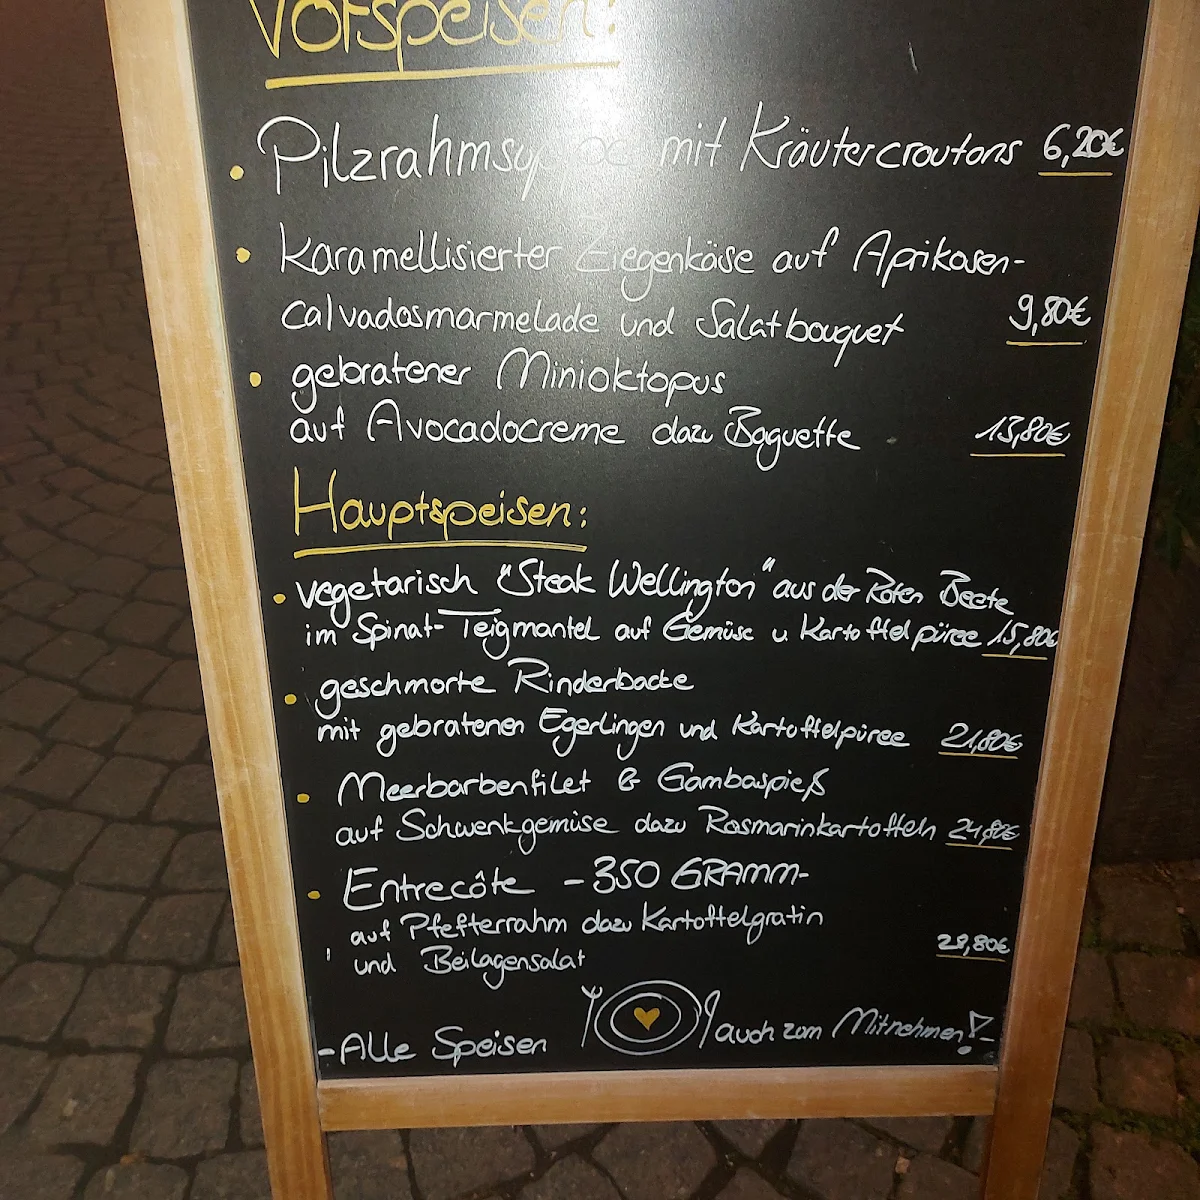 Vorspeisen:
Pilzrahmsuppe mit Kräutercroutons 6,20€
Karamellisierter Ziegenkäise auf Aprikosen-
calvadosmarmelade und Salatbouquet 9,80€
gebratener Minioktopus
auf Avocadocreme dazu Baguette 13,80€
Hauptspeisen:
vegetarisch "Steak Wellington" aus der Roten Beete
im Spinat-Teigmantel auf Gemüse u. Kartoffelpüree 15,80€
geschmorte Rinderbacke
mit gebratenen Egerlingen und Kartoffelpüree 21,80€
Meerbarbenfilet & Gambaspieß
auf Schwenkgemüse dazu Rosmarinkartoffeln 24,80€
Entrecôte -350 GRAMM-
auf Pfefferrahm dazu Kartoffelgratin
und Beilagensalat 28,80€
-Alle Speisen auch zum Mitnehmen!-